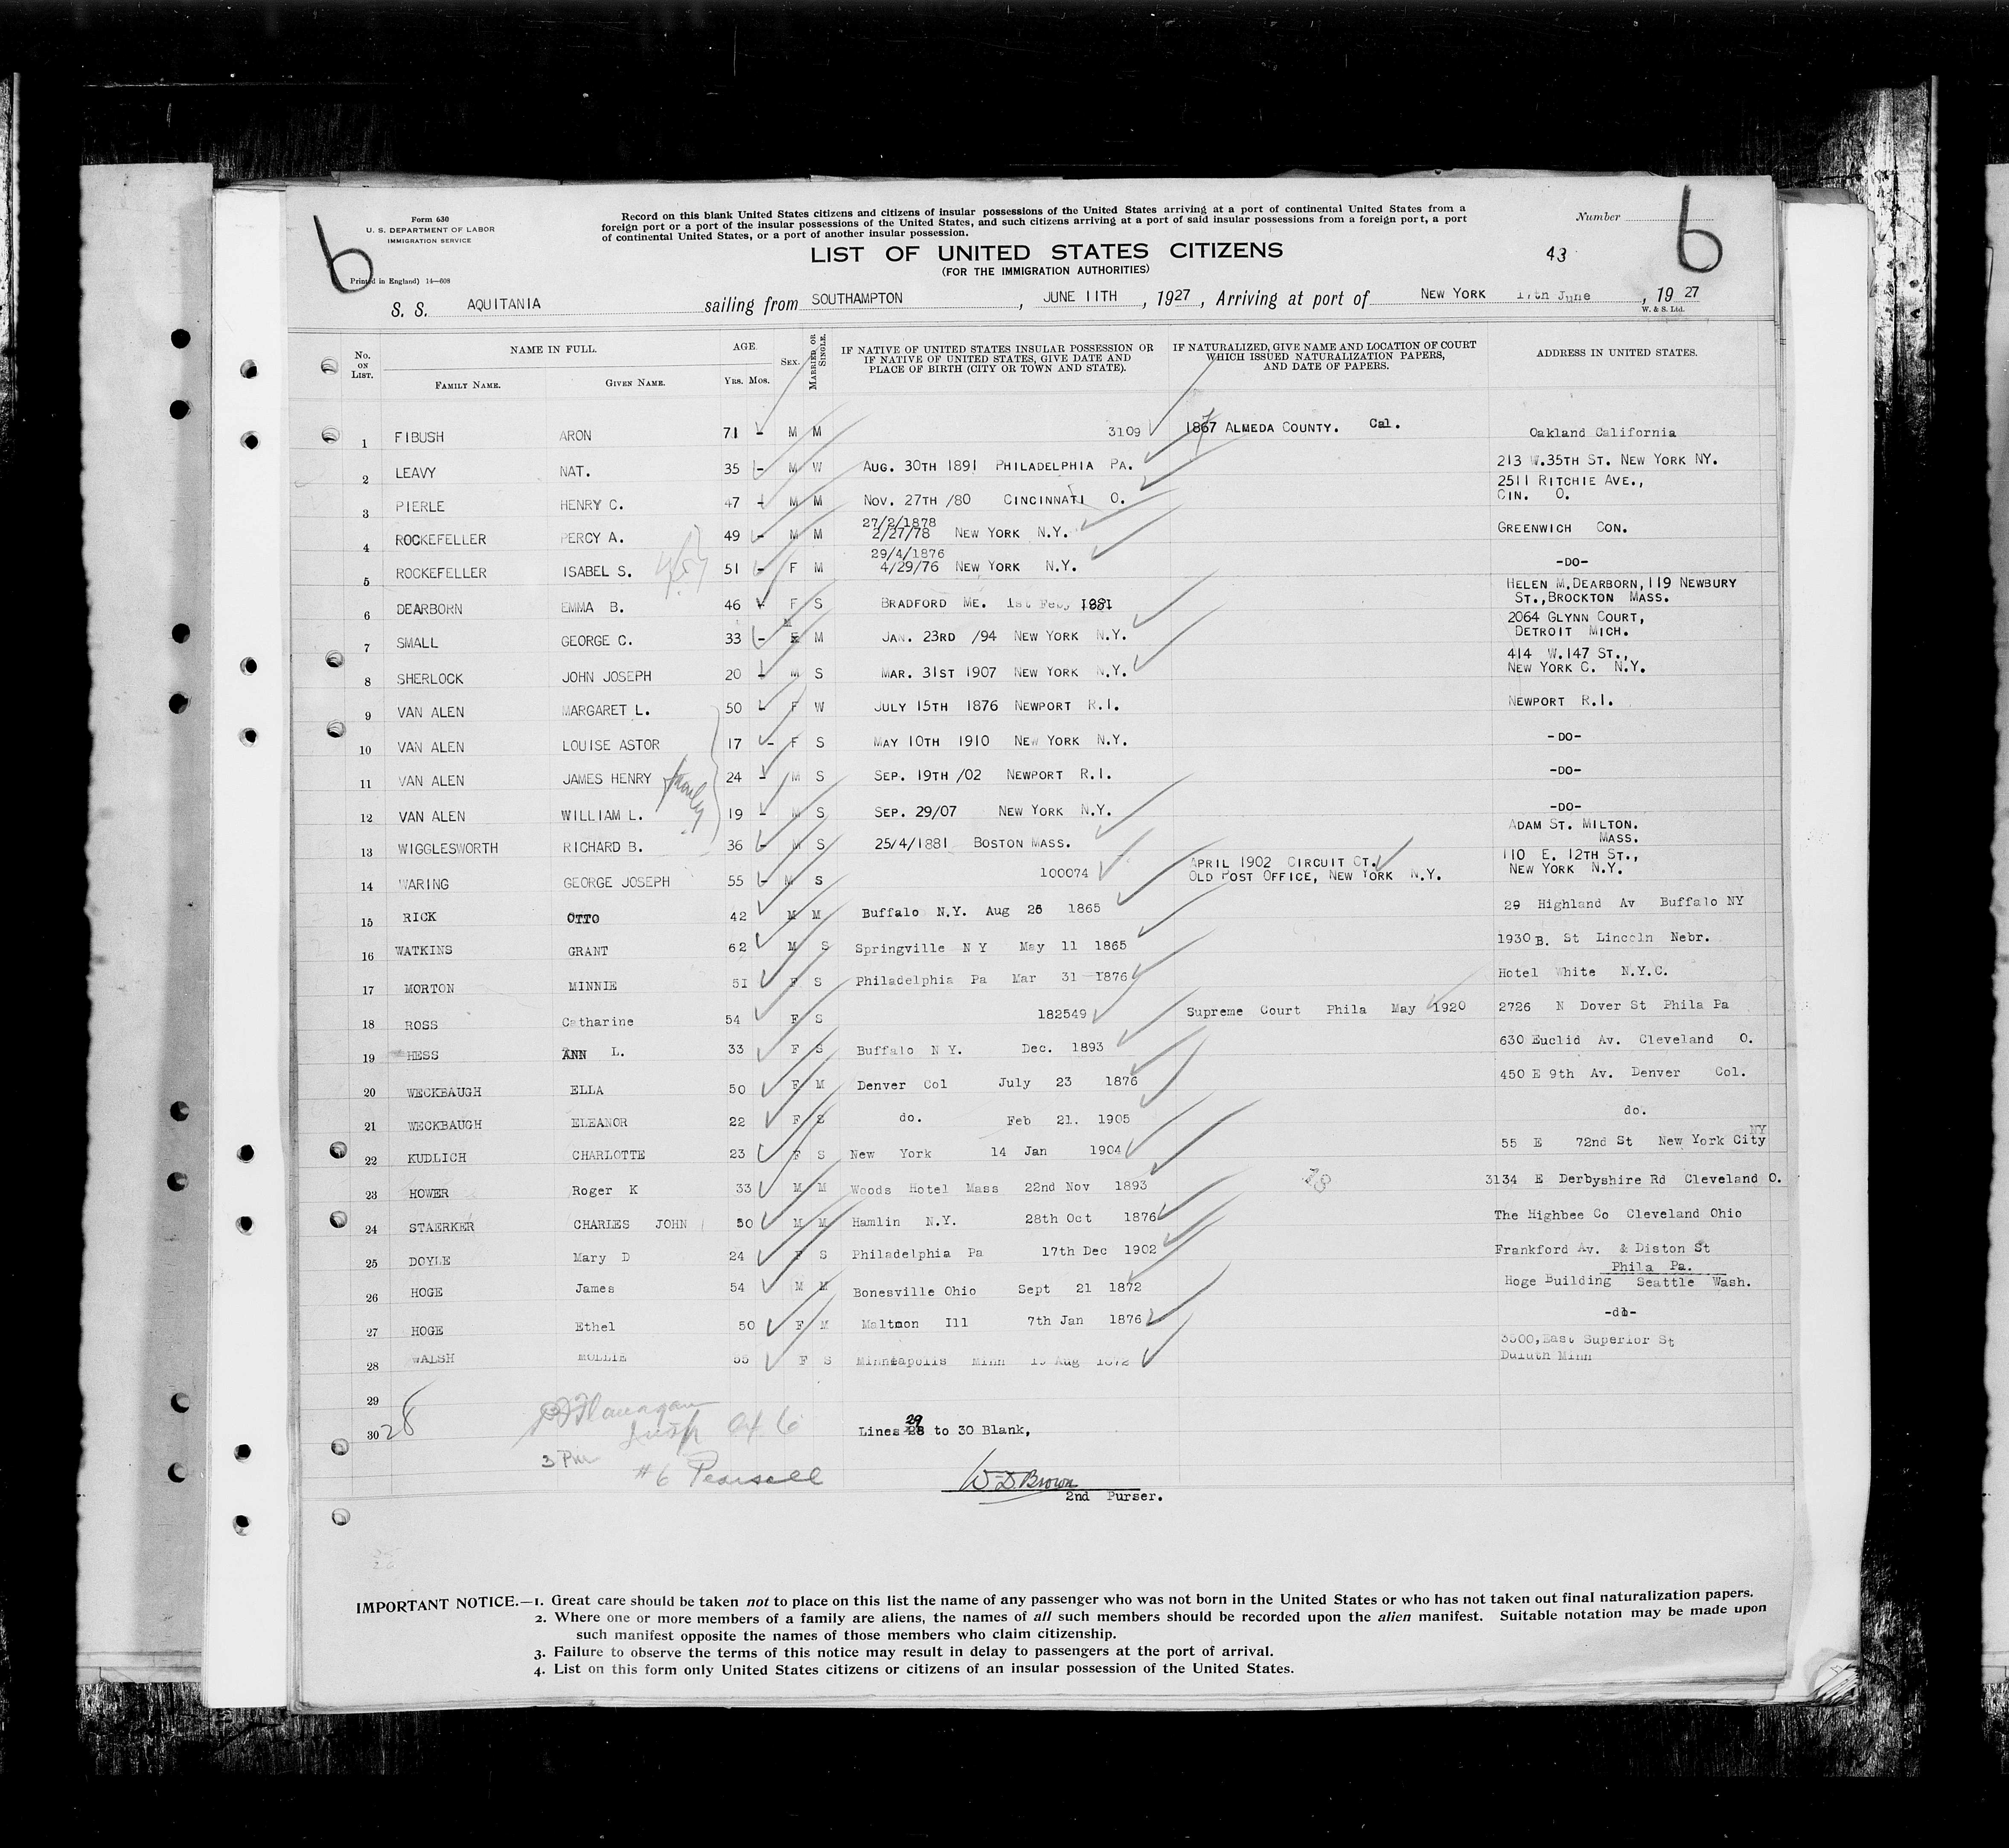 Form 630
U. S. DEPARTMENT OF LABOR
IMMIGRATION SERVICE
Printed in England) 14—608
6
Record on this blank United States citizens and citizens of insular possessions of the United States arriving at a port of continental United States from a
foreign port or a port of the insular possessions of the United States, and such citizens arriving at a port of said insular possessions from a foreign port, a port
of continental United States, or a port of another insular possession.
Number
6
LIST OF UNITED STATES CITIZENS
43
(FOR THE IMMIGRATION AUTHORITIES)
S. S. AQUITANIA sailing from SOUTHAMPTON, JUNE 11TH, 1927, Arriving at port of NEW YORK 17th June, 1927
W. & S. Ltd.
No. ON LIST. NAME IN FULL. AGE. SEX. MARRIED OR SINGLE. IF NATIVE OF UNITED STATES INSULAR POSSESSION OR IF NATIVE OF UNITED STATES, GIVE DATE AND PLACE OF BIRTH (CITY OR TOWN AND STATE). IF NATURALIZED, GIVE NAME AND LOCATION OF COURT WHICH ISSUED NATURALIZATION PAPERS, AND DATE OF PAPERS. ADDRESS IN UNITED STATES.
FAMILY NAME. GIVEN NAME. YRS. MOS.
1 FIBUSH ARON 71 - M M 3109 1867 ALMEDA COUNTY. Cal. Oakland California
2 LEAVY NAT. 35 - M W AUG. 30TH 1891 PHILADELPHIA PA. 213 W.35TH ST. NEW YORK NY.
3 PIERLE HENRY C. 47 - M M NOV. 27TH /80 CINCINNATI O. 2511 RITCHIE AVE., CIN. O.
4 ROCKEFELLER PERCY A. 49 - M M 27/2/1878 2/27/78 NEW YORK N.Y. GREENWICH CON.
5 ROCKEFELLER ISABEL S. 51 - F M 29/4/1876 4/29/76 NEW YORK N.Y. -DO-
6 DEARBORN EMMA B. 46 - F S BRADFORD ME. 1st Feby 1881 HELEN M.DEARBORN,119 NEWBURY ST.,BROCKTON MASS.
7 SMALL GEORGE C. 33 - M M JAN. 23RD /94 NEW YORK N.Y. 2064 GLYNN COURT, DETROIT MICH.
8 SHERLOCK JOHN JOSEPH 20 - M S MAR. 31ST 1907 NEW YORK N.Y. 414 W.147 ST., NEW YORK C. N.Y.
9 VAN ALEN MARGARET L. 50 - F W JULY 15TH 1876 NEWPORT R.I. NEWPORT R.I.
10 VAN ALEN LOUISE ASTOR 17 - F S MAY 10TH 1910 NEW YORK N.Y. -DO-
11 VAN ALEN JAMES HENRY family 24 - M S SEP. 19TH /02 NEWPORT R.I. -DO-
12 VAN ALEN WILLIAM L. 19 - M S SEP. 29/07 NEW YORK N.Y. -DO-
13 WIGGLESWORTH RICHARD B. 36 - M S 25/4/1881 BOSTON MASS. ADAM ST. MILTON. MASS.
14 WARING GEORGE JOSEPH 55 - M S 100074 APRIL 1902 CIRCUIT CT. OLD POST OFFICE, NEW YORK N.Y. 110 E. 12TH ST., NEW YORK N.Y.
15 RICK OTTO 42 M M Buffalo N.Y. Aug 25 1865 29 Highland Av Buffalo NY
16 WATKINS GRANT 62 M S Springville N Y May 11 1865 1930 B. St Lincoln Nebr.
17 MORTON MINNIE 51 F S Philadelphia Pa Mar 31 1876 Hotel White N.Y.C.
18 ROSS Catharine 54 F S 182549 Supreme Court Phila May 1920 2726 N Dover St Phila Pa
19 HESS ANN L. 33 F S Buffalo N Y. Dec. 1893 630 Euclid Av. Cleveland O.
20 WECKBAUGH ELLA 50 F M Denver Col July 23 1876 450 E 9th Av. Denver Col.
21 WECKBAUGH ELEANOR 22 F S do. Feb 21. 1905 do.
22 KUDLICH CHARLOTTE 23 F S New York 14 Jan 1904 55 E 72nd St New York City NY
23 HOWER Roger K 33 M M Woods Hotel Mass 22nd Nov 1893 3134 E Derbyshire Rd Cleveland O.
24 STAERKER CHARLES JOHN 50 M M Hamlin N.Y. 28th Oct 1876 The Highbee Co Cleveland Ohio
25 DOYLE Mary D 24 F S Philadelphia Pa 17th Dec 1902 Frankford Av. & Diston St Phila Pa.
26 HOGE James 54 M M Bonesville Ohio Sept 21 1872 Hoge Building Seattle Wash.
27 HOGE Ethel 50 F M Maltoon Ill 7th Jan 1876 -do-
28 WALSH MOLLIE 55 F S Minneapolis Minn 15 Aug 1872 3500,East Superior St Duluth Minn
29
30 28
Lines 29 to 30 Blank,
J Flanagan
Insp
3 Pm
#6 Pearsall
W D Brown
2nd Purser.
IMPORTANT NOTICE.—1. Great care should be taken not to place on this list the name of any passenger who was not born in the United States or who has not taken out final naturalization papers.
2. Where one or more members of a family are aliens, the names of all such members should be recorded upon the alien manifest. Suitable notation may be made upon
such manifest opposite the names of those members who claim citizenship.
3. Failure to observe the terms of this notice may result in delay to passengers at the port of arrival.
4. List on this form only United States citizens or citizens of an insular possession of the United States.